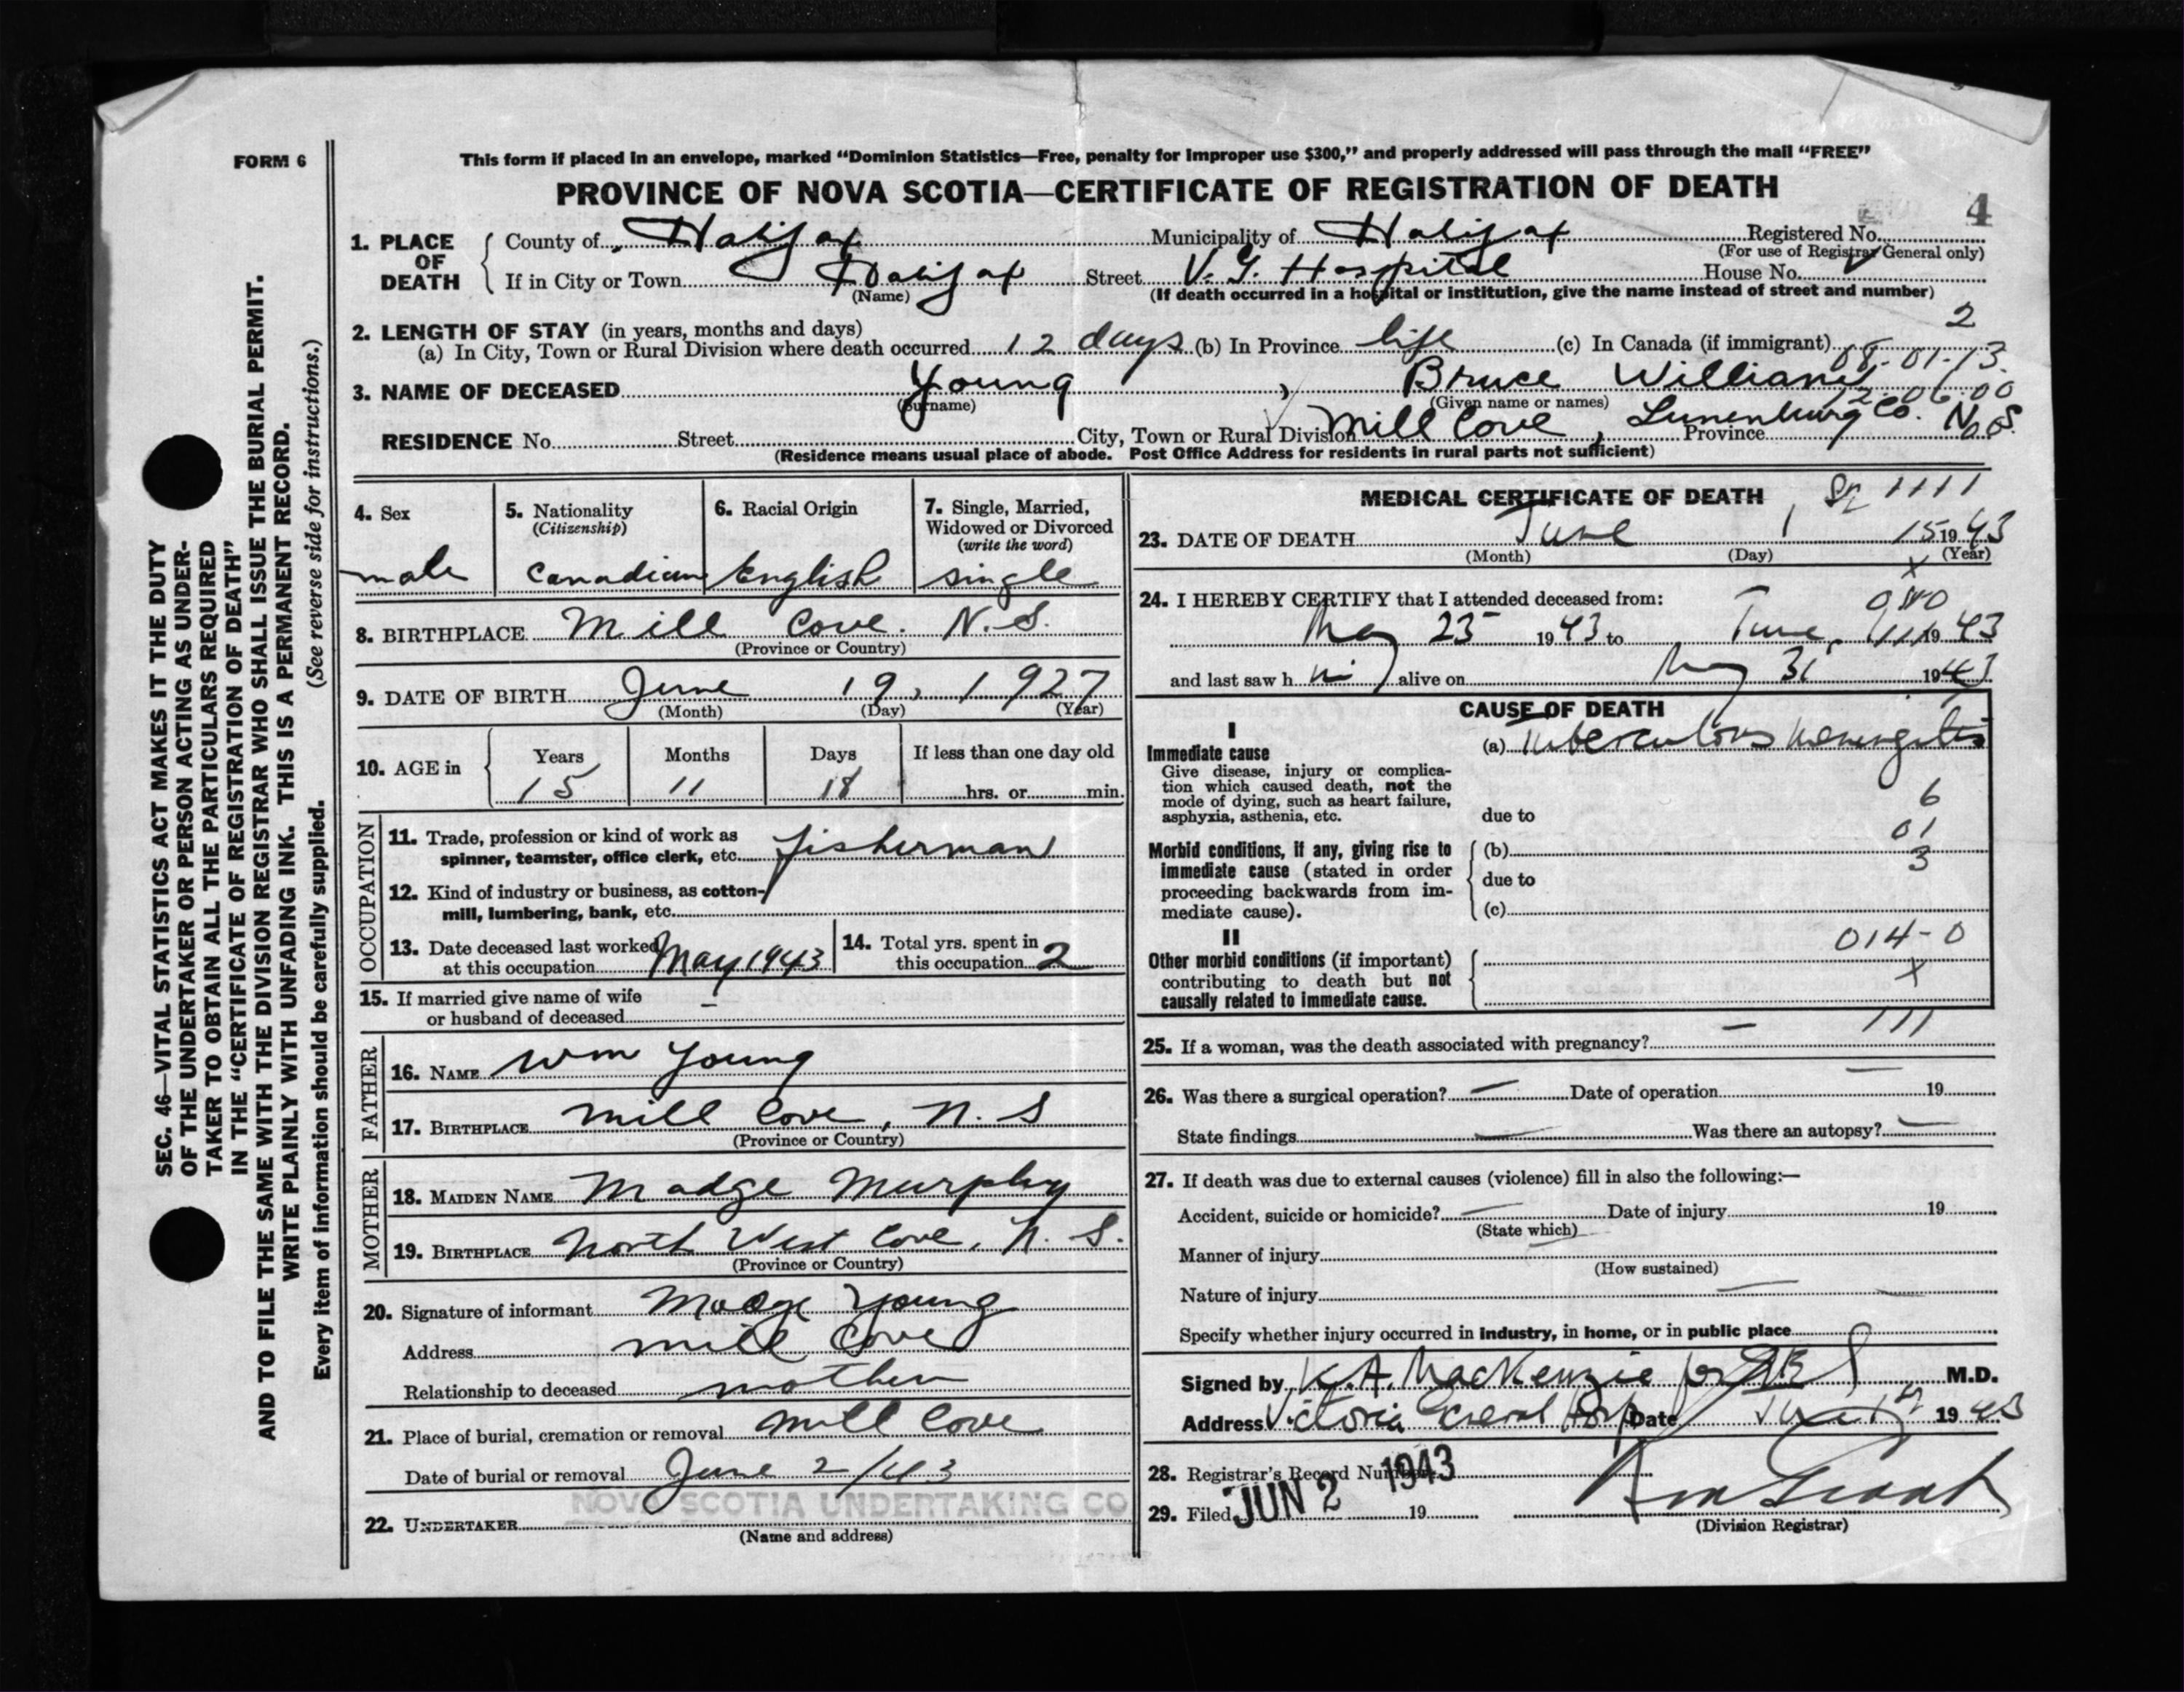 FORM 6
This form if placed in an envelope, marked "Dominion Statistics—Free, penalty for improper use $300," and properly addressed will pass through the mail "FREE"
PROVINCE OF NOVA SCOTIA—CERTIFICATE OF REGISTRATION OF DEATH
4
1. PLACE OF DEATH
County of Halifax Municipality of Halifax Registered No.
(For use of Registrar General only)
If in City or Town Halifax Street V. G. Hospital House No.
(Name) (If death occurred in a hospital or institution, give the name instead of street and number)
2. LENGTH OF STAY (in years, months and days) 2
(a) In City, Town or Rural Division where death occurred 12 days (b) In Province life (c) In Canada (if immigrant)
08-01-13
3. NAME OF DECEASED Young, Bruce William
(Surname) (Given name or names) 12-06-00
RESIDENCE No. Street City, Town or Rural Division Mill Cove, Lunenburg Co. Province N.S.
(Residence means usual place of abode. Post Office Address for residents in rural parts not sufficient)
4. Sex
male
5. Nationality
(Citizenship)
Canadian
6. Racial Origin
English
7. Single, Married,
Widowed or Divorced
(write the word)
single
8. BIRTHPLACE Mill Cove. N.S.
(Province or Country)
9. DATE OF BIRTH June 19, 1927
(Month) (Day) (Year)
10. AGE in
Years Months Days If less than one day old
15 11 18 hrs. or min.
OCCUPATION
11. Trade, profession or kind of work as
spinner, teamster, office clerk, etc. fisherman
12. Kind of industry or business, as cotton-
mill, lumbering, bank, etc.
13. Date deceased last worked
at this occupation May 1943
14. Total yrs. spent in
this occupation 2
15. If married give name of wife
or husband of deceased –
FATHER
16. NAME Wm Young
17. BIRTHPLACE Mill Cove, N. S
(Province or Country)
MOTHER
18. MAIDEN NAME Madge Murphy
19. BIRTHPLACE North West Cove, N. S.
(Province or Country)
20. Signature of informant Madge Young
Address Mill Cove
Relationship to deceased mother
21. Place of burial, cremation or removal Mill Cove
Date of burial or removal June 2/43
NOVA SCOTIA UNDERTAKING CO
22. UNDERTAKER
(Name and address)
MEDICAL CERTIFICATE OF DEATH
1111
23. DATE OF DEATH June 1 15 1943
(Month) (Day) (Year)
x
24. I HEREBY CERTIFY that I attended deceased from:
May 25 1943 to June 1943
and last saw h im alive on May 31 1943
CAUSE OF DEATH
I
Immediate cause
Give disease, injury or complica-
tion which caused death, not the
mode of dying, such as heart failure,
asphyxia, asthenia, etc.
(a) Tuberculous Meningitis
6
due to
01
Morbid conditions, if any, giving rise to
immediate cause (stated in order
proceeding backwards from im-
mediate cause).
(b)
3
due to
(c)
II
Other morbid conditions (if important)
contributing to death but not
causally related to immediate cause.
014-0
x
111
25. If a woman, was the death associated with pregnancy? —
26. Was there a surgical operation? — Date of operation — 19
State findings — Was there an autopsy? —
27. If death was due to external causes (violence) fill in also the following:—
Accident, suicide or homicide? — Date of injury 19
(State which)
Manner of injury
(How sustained)
Nature of injury
Specify whether injury occurred in industry, in home, or in public place
Signed by K.A. MacKenzie M.D.
Address Victoria General Hosp Date June 1st 1943
28. Registrar's Record Number
29. Filed JUN 2 1943 19
(Division Registrar)
SEC. 46—VITAL STATISTICS ACT MAKES IT THE DUTY
OF THE UNDERTAKER OR PERSON ACTING AS UNDER-
TAKER TO OBTAIN ALL THE PARTICULARS REQUIRED
IN THE "CERTIFICATE OF REGISTRATION OF DEATH"
AND TO FILE THE SAME WITH THE DIVISION REGISTRAR WHO SHALL ISSUE THE BURIAL PERMIT.
WRITE PLAINLY WITH UNFADING INK. THIS IS A PERMANENT RECORD.
Every item of information should be carefully supplied. (See reverse side for instructions.)